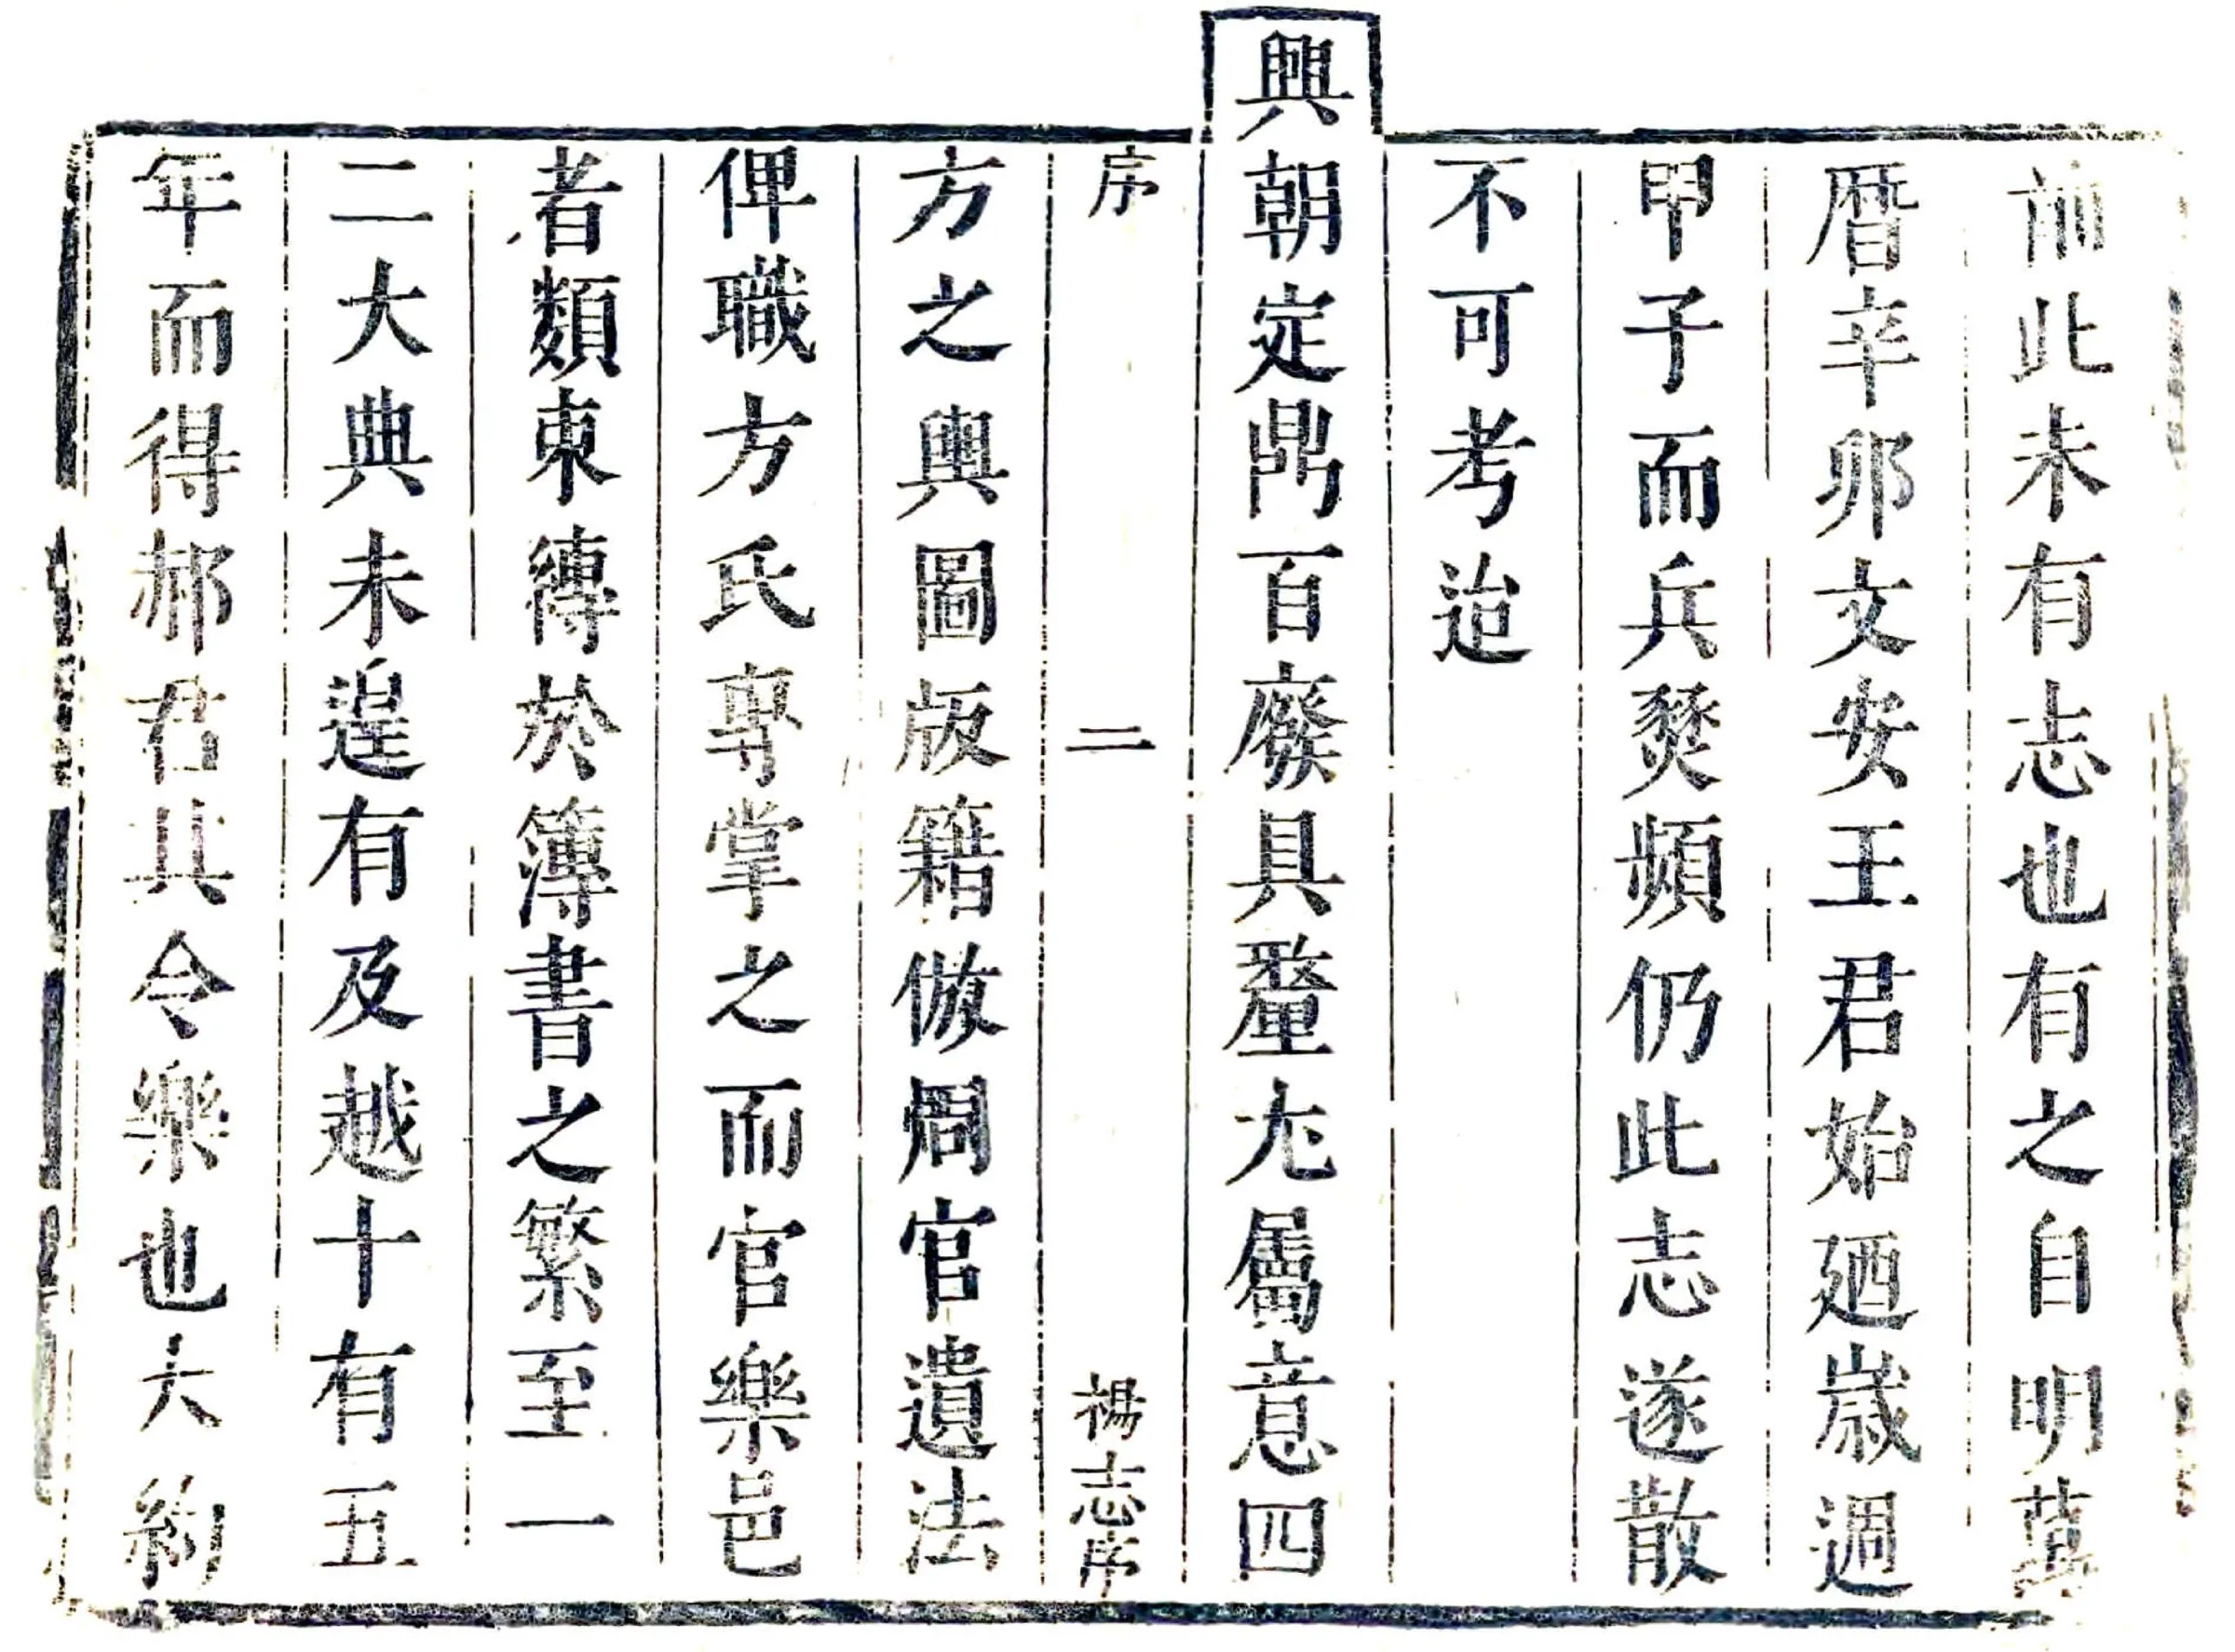 前此未有志也有之自明萬
曆辛卯文安王君始廼歲週
甲子而兵燹頻仍此志遂散
不可考迨
興朝定鼎百廢具釐尢屬意四
序 二 楊志序
方之輿圖版籍倣周官遺法
俾職方氏專掌之而官樂邑
者類東縛於簿書之繁至一
二大典未遑有及越十有五
年而得郝君其令樂也大約